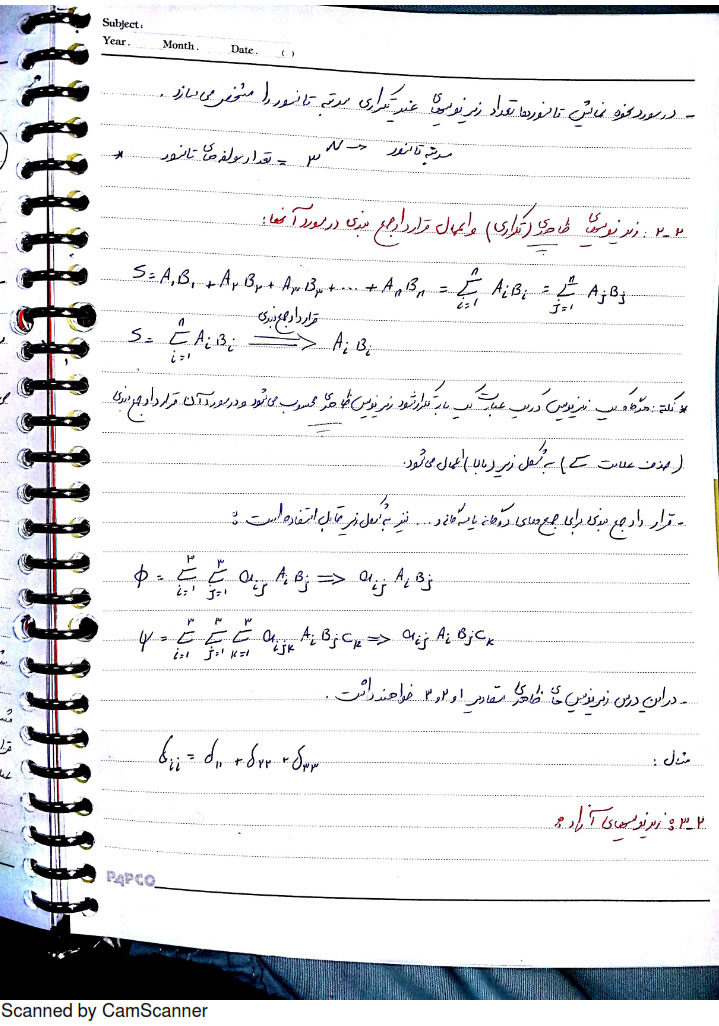 Subject:
Year. Month. Date. ( )
- در مورد نحوه نمایش تانسورها تعداد زیرنویسهای غیر تکراری مرتبه تانسور را مشخص می‌سازد.
* تعداد مولفه‌های تانسور = ۳^N → مرتبه تانسور
۲-۲: زیرنویسهای ظاهری (تکراری) و اعمال قرارداد جمع بندی در مورد آنها:
S = A₁B₁ + A₂B₂ + A₃B₃ + ... + AₙBₙ = Σⁿᵢ₌₁ AᵢBᵢ = Σⁿⱼ₌₁ AⱼBⱼ
S = Σⁿᵢ₌₁ AᵢBᵢ ⟹ قرارداد جمع بندی AᵢBᵢ
* نکته: هرگاه یک زیرنویس در یک عبارت یک بار تکرار شود زیرنویس ظاهری محسوب می‌شود و در مورد آن قرارداد جمع بندی
(حذف علامت Σ) به شکل زیر (بالا) اعمال می‌شود.
- قرار داد جمع بندی برای جمع‌های دوگانه یا سه‌گانه و ... نیز به شکل زیر قابل استفاده است:
φ = Σ³ᵢ₌₁ Σ³ⱼ₌₁ aᵢⱼ AᵢBⱼ ⟹ aᵢⱼ AᵢBⱼ
ψ = Σ³ᵢ₌₁ Σ³ⱼ₌₁ Σ³ₖ₌₁ aᵢⱼₖ AᵢBⱼCₖ ⟹ aᵢⱼ AᵢBⱼCₖ
- در این درس زیرنویس های ظاهری مقادیر ۱ و ۲ و ۳ خواهند داشت.
مثال: δᵢᵢ = δ₁₁ + δ₂₂ + δ₃₃
۲-۳: زیرنویسهای آزاد:
PAPCO
Scanned by CamScanner